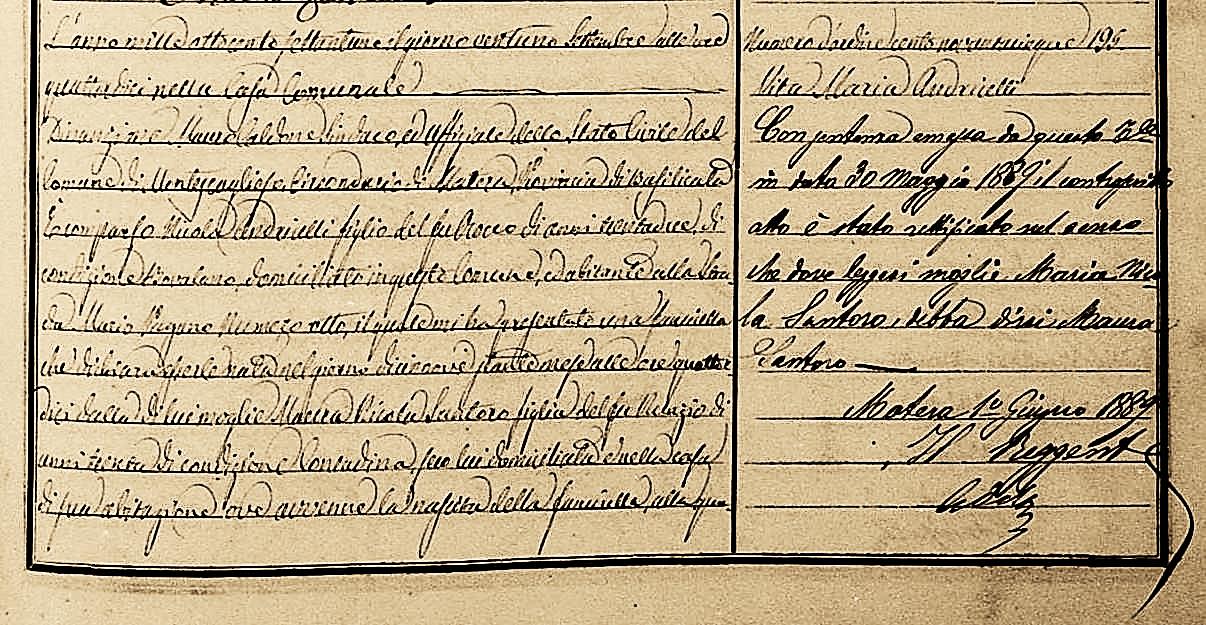 L'anno mille ottocento settantuno il giorno ventuno Settembre alle ore
quattordici nella Casa Comunale
Dinanzi a me Mauro Sindaco ed Uffiziale dello Stato Civile del
Comune di Montescaglioso Circondario di Matera, Provincia di Basilicata
È comparso Nicola Andriulli figlio del fu Rocco di anni trentadue, di
condizione domiciliato in questo Comune, ed abitante alla Stra-
da Mario Pagano Numero otto, il quale mi ha presentato una fanciulla
che dichiara esserle nata nel giorno diciannove stante mese alle ore quattor-
dici dalla di lui moglie Maura Nicola Santoro figlia del fu Nunzio di
anni trenta di condizione Contadina, seco lui domiciliata e nella casa
di sua abitazione ove avvenne la nascita della fanciulla, alla qua-
Numero d'ordine cento novantacinque 195.
Vita Maria Andriulli
Con sentenza emessa da questo
in data 30 Maggio 1889 il controscritto
atto è stato rettificato nel senso
che dove leggesi moglie Maria Nico-
la Santoro, debba dirsi Maura
Santoro
Matera 1° Giugno 1889
Il Reggente